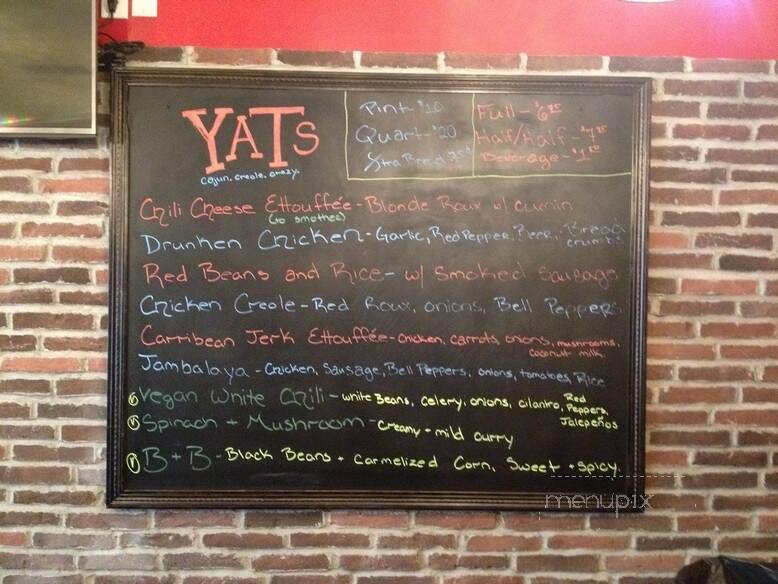 YATS
cajun. creole. crazy.
Pint - $10
Quart - $20
Xtra Bread
Full - $6
Half/Half - $7
Beverage - $1
Chili Cheese Ettouffée - Blonde Roux w/ cumin
(to smother)
Drunken Chicken - Garlic, Red Pepper, Beer, Bread
crumbs
Red Beans and Rice - w/ Smoked Sausage
Chicken Creole - Red Roux, onions, Bell Peppers
Carribean Jerk Ettouffée - chicken, carrots, onions, mushrooms,
coconut milk
Jambalaya - Chicken, Sausage, Bell Peppers, onions, tomatoes, Rice
(V) Vegan White Chili - white Beans, celery, onions, cilantro, Red
Peppers,
Jalepeños
(V) Spinach + Mushroom - creamy + mild curry
(V) B + B - Black Beans + Carmelized Corn, Sweet + spicy.
menupix